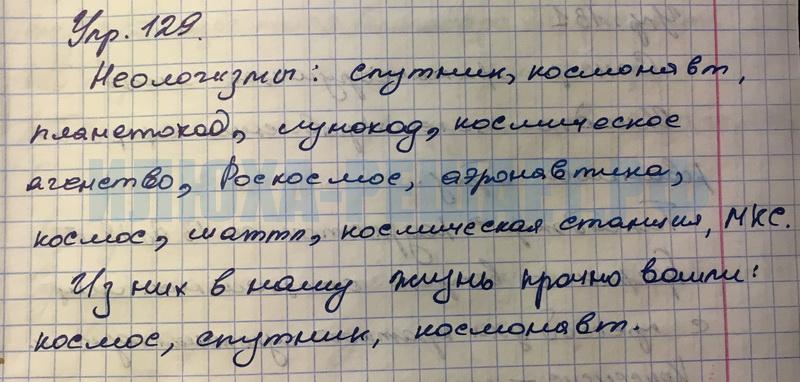 Упр. 129.
Неологизмы: спутник, космонавт,
планетоход, луноход, космическое
агенство, Роскосмос, аэронавтика,
космос, шаттл, космическая станция, МКС.
Из них в нашу жизнь прочно вошли:
космос, спутник, космонавт.